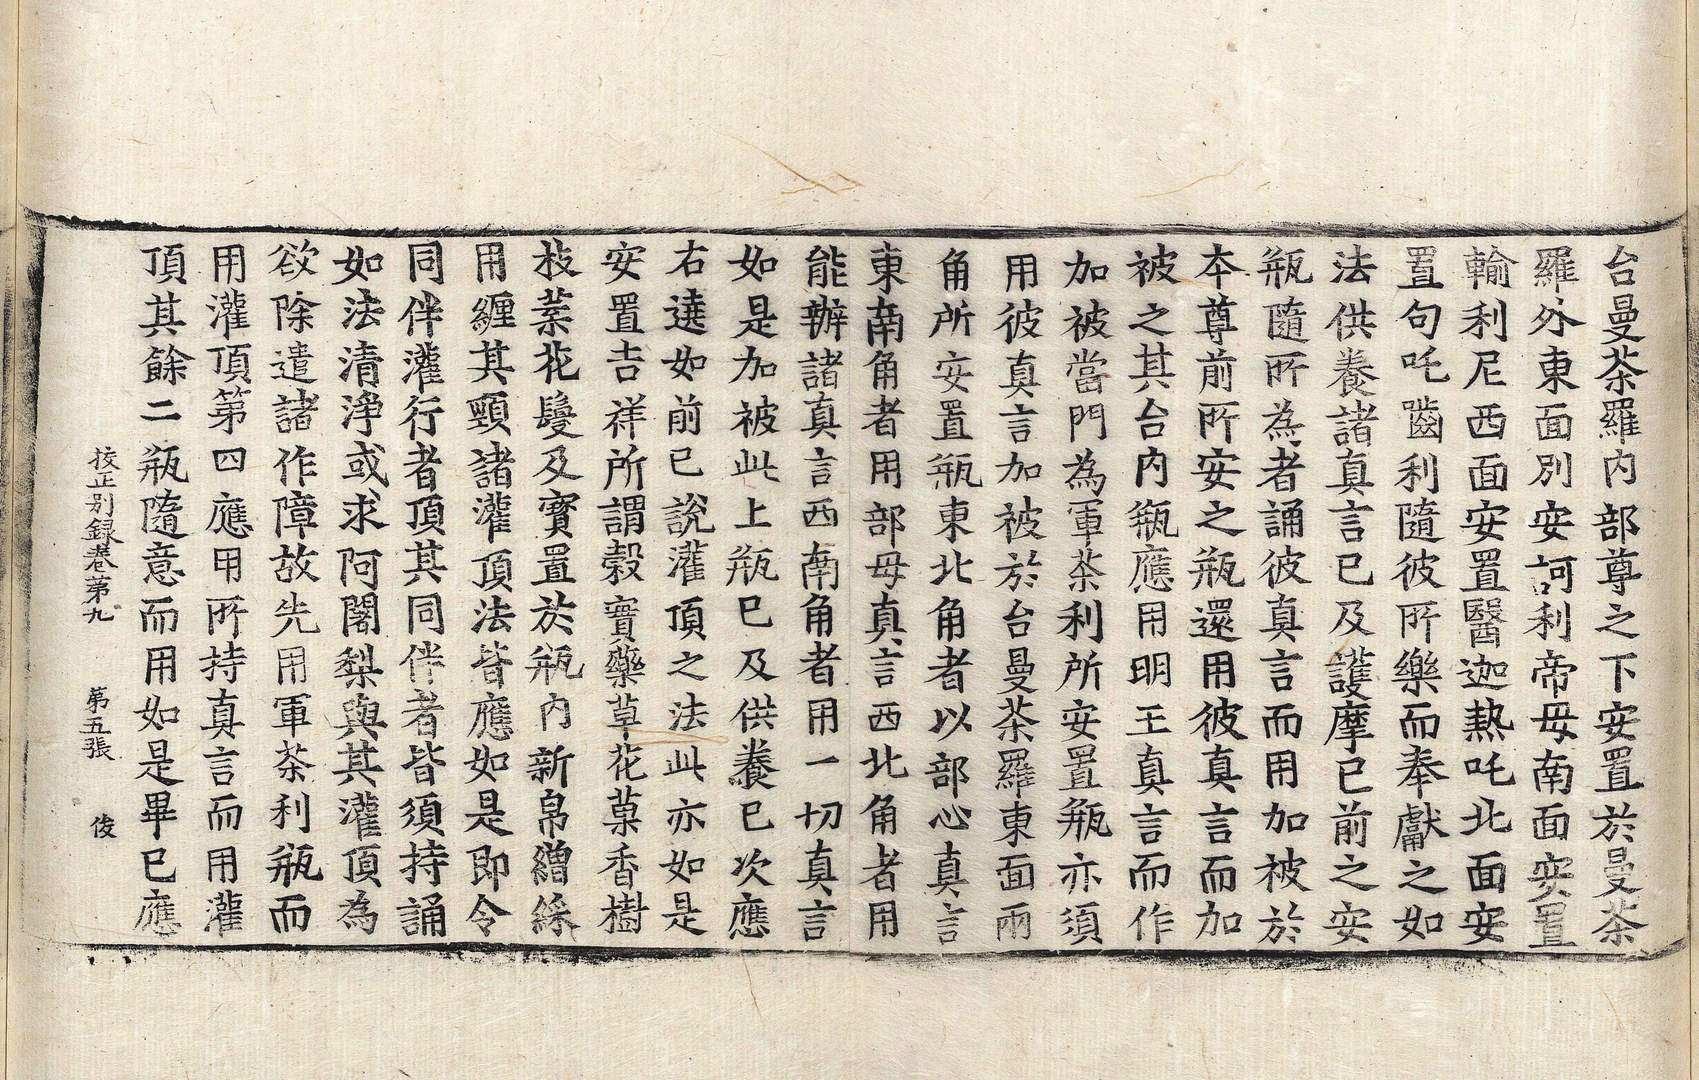 台曼茶羅内部尊之下安置於曼茶
羅外東面別安訶利帝母南面安置
輸利尼西面安置醫迦熱吒北面安
置句吒噛利隨彼所樂而奉獻之如
法供養諸真言已及護摩已前之安
瓶隨所為者誦彼真言而用加被於
本尊前所安之瓶還用彼真言而加
被之其台内瓶應用明王真言而作
加被當門為軍茶利所安置瓶亦須
用彼真言加被於台曼茶羅東面兩
角所安置瓶東北角者以部心真言
東南角者用部母真言西北角者用
能辦諸真言西南角者用一切真言
如是加被此上瓶已及供養已次應
右遶如前已說灌頂之法此亦如是
安置吉祥所謂穀寶藥草花菓香樹
枝葉花鬘及寳置於瓶内新帛繒綵
用纏其頸諸灌頂法皆應如是即令
同伴灌行者頂其同伴者皆須持誦
如法清淨或求阿闍梨與其灌頂為
欲除遣諸作障故先用軍茶利瓶而
用灌頂第四應用所持真言而用灌
頂其餘二瓶隨意而用如是畢已應
校正别録卷第九 第五張 俊